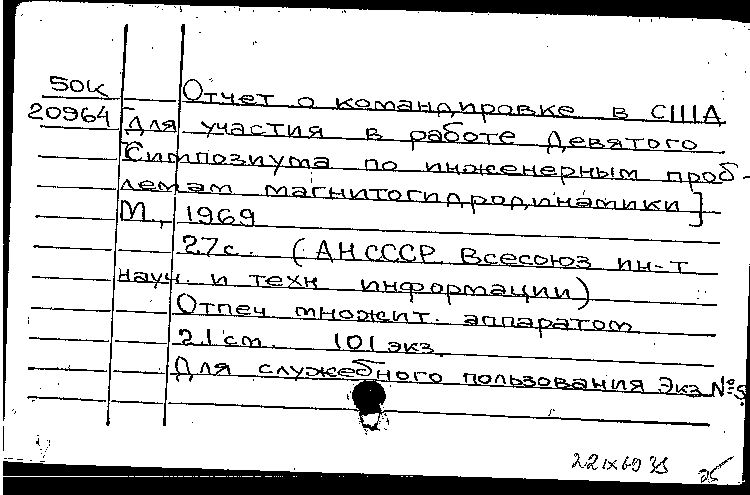 50к
Отчет о командировке в США
20964 [для участия в работе Девятого
Симпозиума по инженерным проб-
лемам магнитогидродинамики]
М., 1969
27с. (АН СССР. Всесоюз ин-т
науч. и техн информации)
Отпеч множит. аппаратом
21 см. 101 экз.
Для служебного пользования Экз №